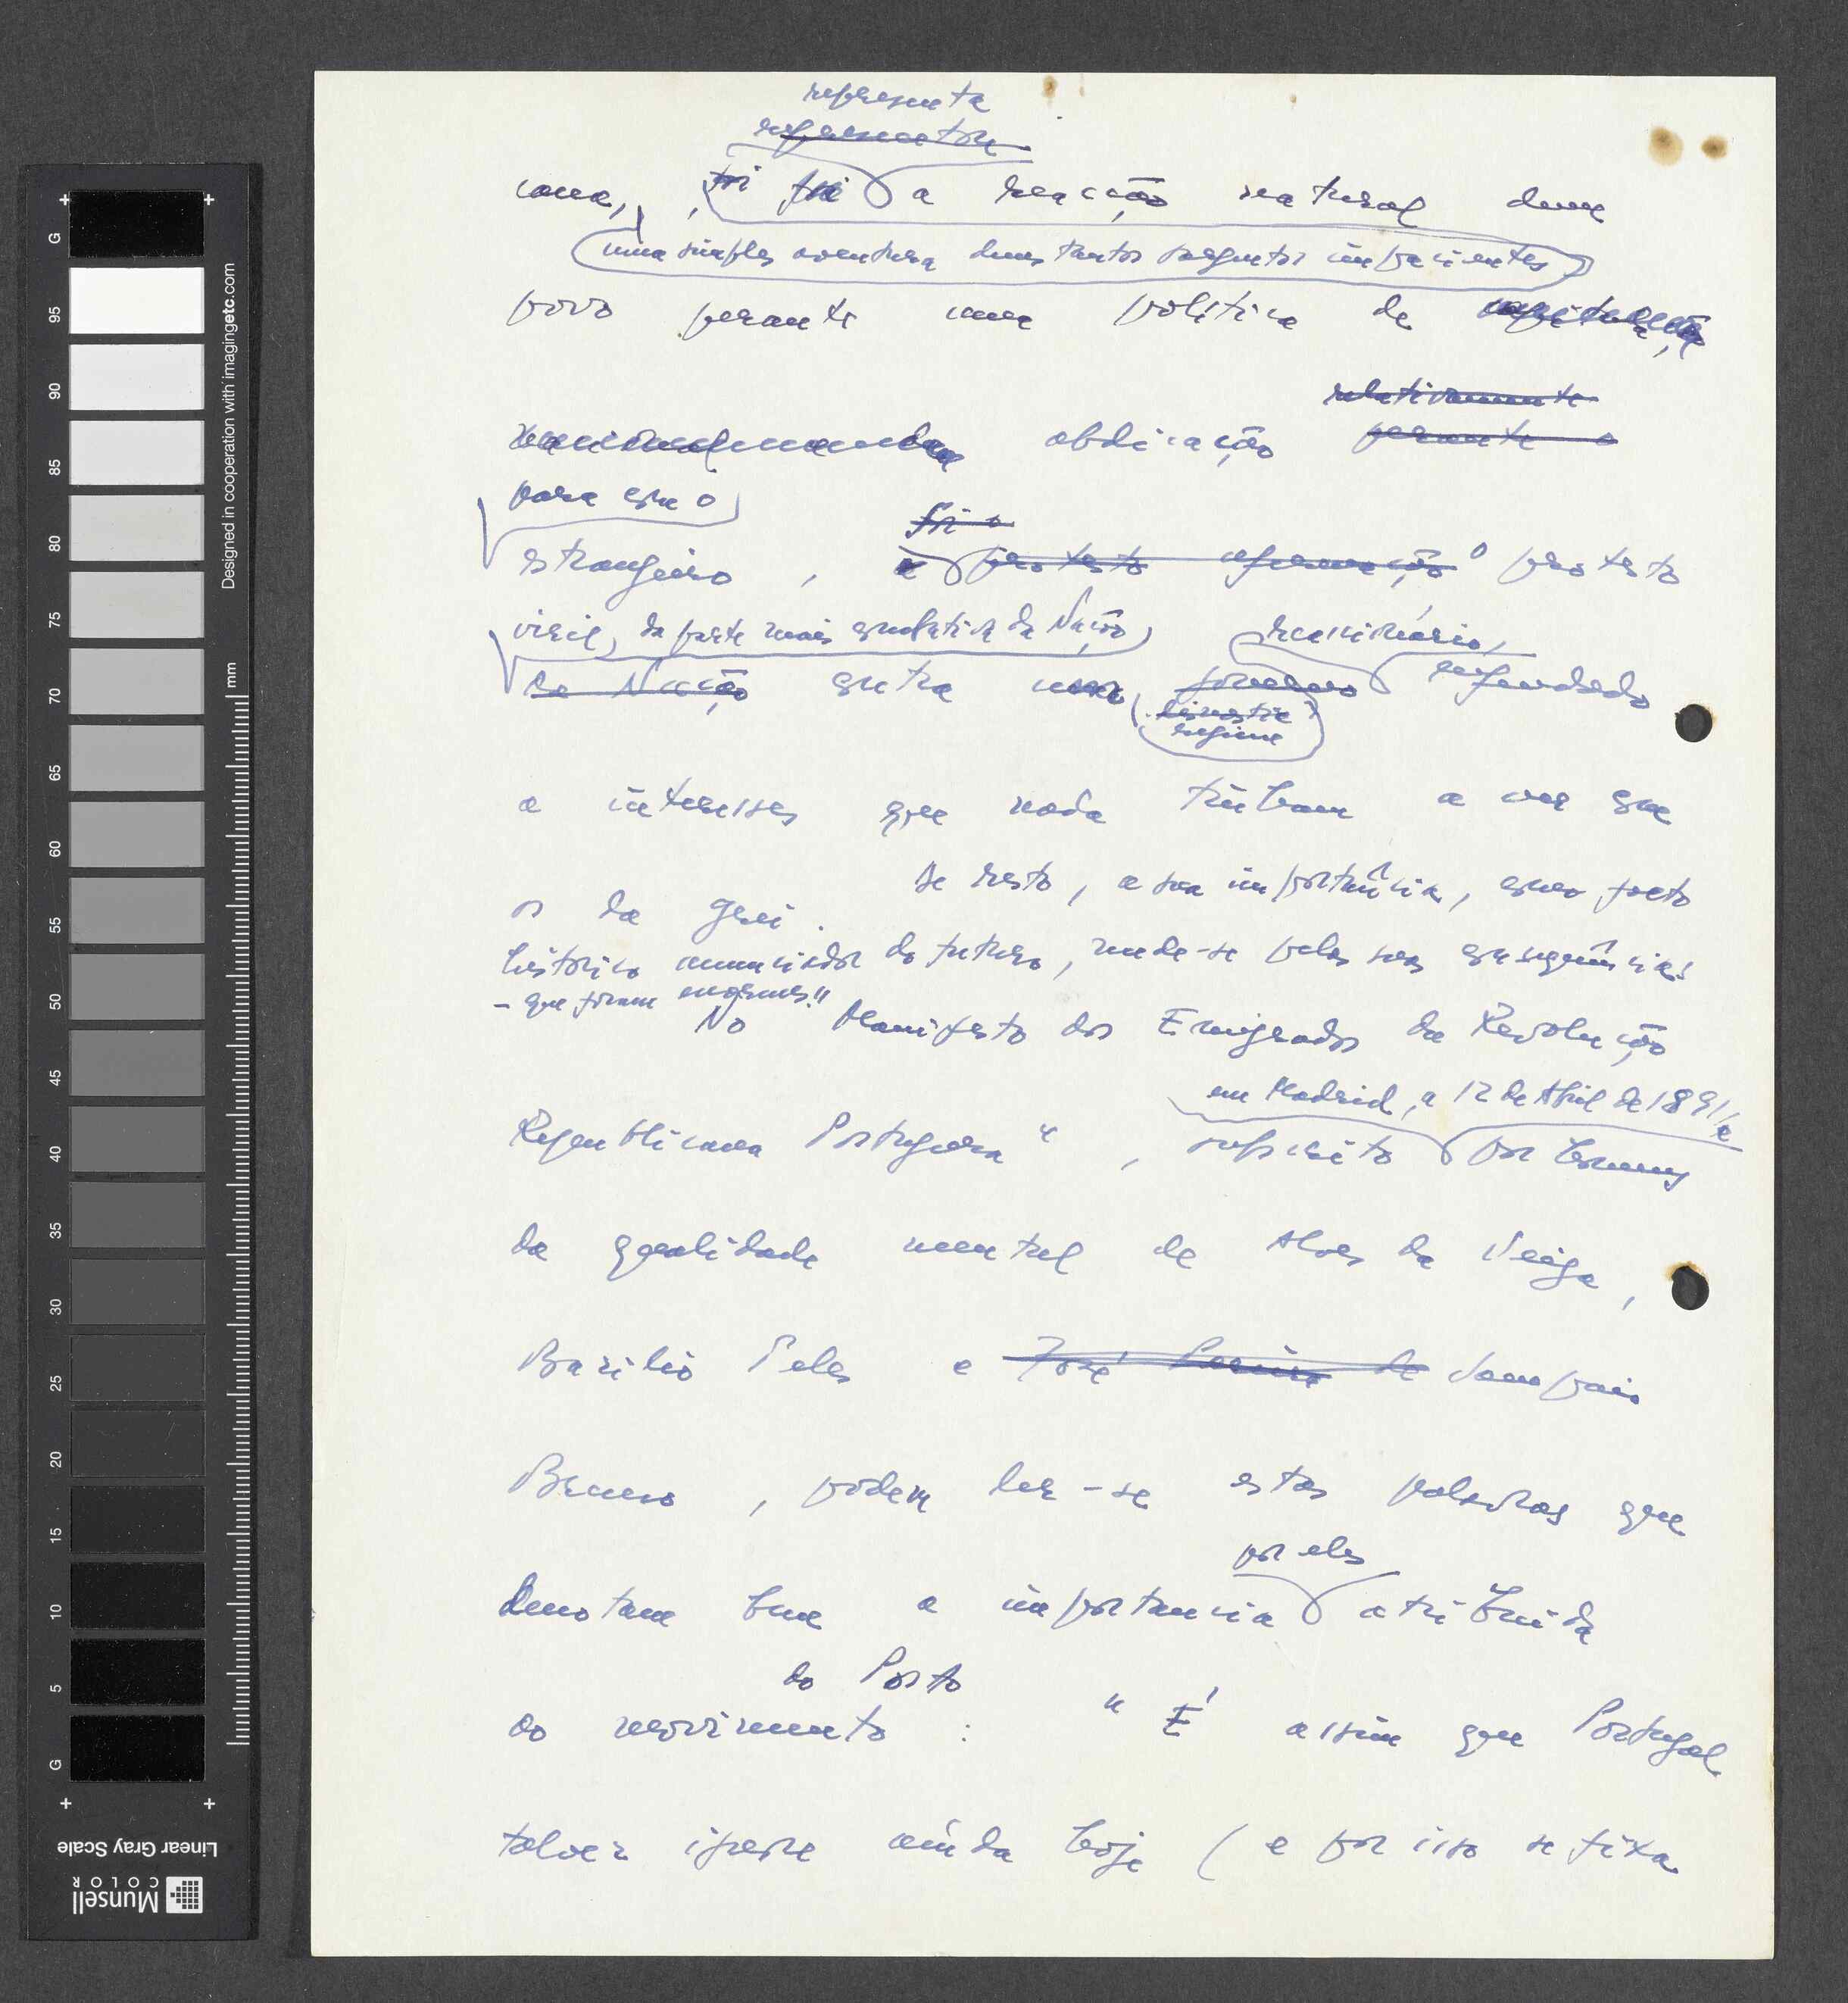 representa
representou
cana, foi foi a reacção natural dum
uma simples aventura duns tantos sargentos impacientes
povo perante uma política de capitulação
relativamente
abdicação perante o
para com o
foi o
estrangeiro, e protesto afirmação o protesto
viril, da parte mais combativa da Nação, reaccionário,
da Nação contra um governo enfeudado
dinastia
regime
a interesses que nada tinham a ver com
De resto, a sua importância, como facto
os da grei.
histórico anunciador do futuro, mede-se pelas suas consequências
- que foram enormes!!
No Manifesto dos Emigrados da Revolução
em Madrid, a 12 de Abril de 1891,
Republicana Portuguesa", subscrito por homens
da qualidade mental de Alves da Veiga,
Basílio Teles e José Pereira de Sampaio
Bruno, podem ler-se estas palavras que
por eles
denotam bem a importancia atribuida
do Porto
ao movimento: "É assim que Portugal
talvez ignore ainda hoje (e por isso se fixa
G 95 90 85 80 75 70 65 60 55 50 45 40 35 30 25 20 15 10 5 G
mm
Designed in cooperation with imagingetc.com
Linear Gray Scale
Munsell
COLOR